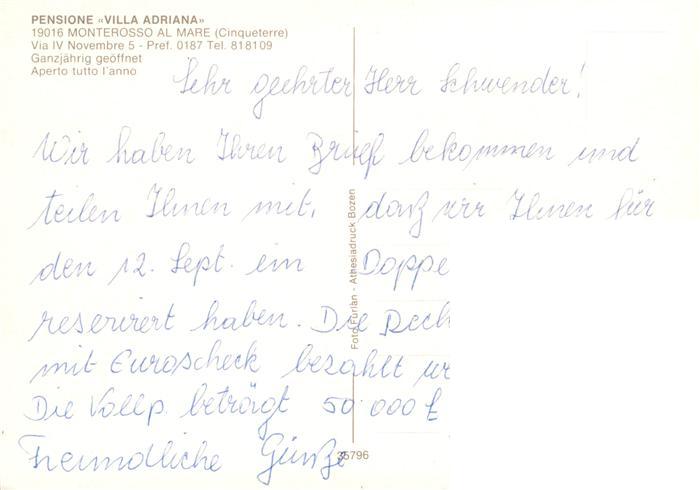 PENSIONE «VILLA ADRIANA»
19016 MONTEROSSO AL MARE (Cinqueterre)
Via IV Novembre 5 - Pref. 0187 Tel. 818109
Ganzjährig geöffnet
Aperto tutto l'anno
Sehr geehrter Herr Schwender!
Wir haben Ihren Brief bekommen und
teilen Ihnen mit, daß wir Ihnen für
den 12. Sept. ein Doppe
reserviert haben. Die Rech
mit Euroscheck bezahlt we
Die Vollp. beträgt 50.000 £
Freundliche Grüße
Foto Furlan - Athesiadruck Bozen
35796